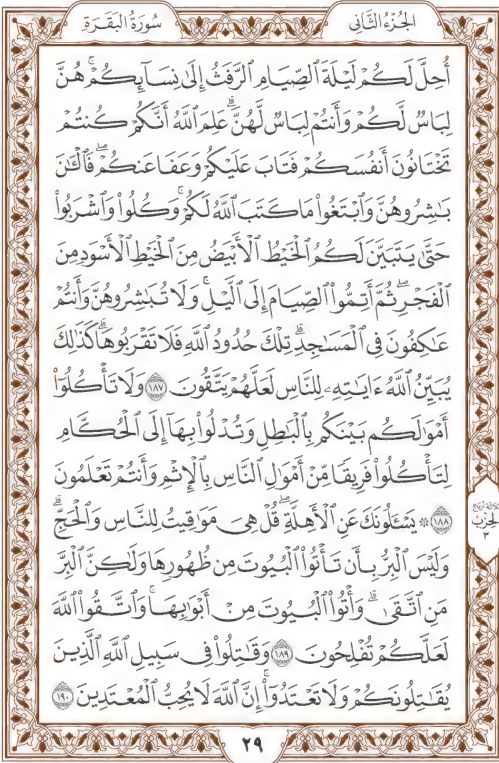 الجُزْءُ الثَّانِي
سُورَةُ البَقَرَةِ
أُحِلَّ لَكُمْ لَيْلَةَ ٱلصِّيَامِ ٱلرَّفَثُ إِلَىٰ نِسَآئِكُمْۚ هُنَّ
لِبَاسٌ لَّكُمْ وَأَنتُمْ لِبَاسٌ لَّهُنَّۗ عَلِمَ ٱللَّهُ أَنَّكُمْ كُنتُمْ
تَخْتَانُونَ أَنفُسَكُمْ فَتَابَ عَلَيْكُمْ وَعَفَا عَنكُمْۖ فَٱلْـَٰٔنَ
بَـٰشِرُوهُنَّ وَٱبْتَغُوا۟ مَا كَتَبَ ٱللَّهُ لَكُمْۚ وَكُلُوا۟ وَٱشْرَبُوا۟
حَتَّىٰ يَتَبَيَّنَ لَكُمُ ٱلْخَيْطُ ٱلْأَبْيَضُ مِنَ ٱلْخَيْطِ ٱلْأَسْوَدِ مِنَ
ٱلْفَجْرِۖ ثُمَّ أَتِمُّوا۟ ٱلصِّيَامَ إِلَى ٱلَّيْلِۚ وَلَا تُبَـٰشِرُوهُنَّ وَأَنتُمْ
عَـٰكِفُونَ فِى ٱلْمَسَـٰجِدِۗ تِلْكَ حُدُودُ ٱللَّهِ فَلَا تَقْرَبُوهَاۗ كَذَٰلِكَ
يُبَيِّنُ ٱللَّهُ ءَايَـٰتِهِۦ لِلنَّاسِ لَعَلَّهُمْ يَتَّقُونَ ١٨٧ وَلَا تَأْكُلُوٓا۟
أَمْوَٰلَكُم بَيْنَكُم بِٱلْبَـٰطِلِ وَتُدْلُوا۟ بِهَآ إِلَى ٱلْحُكَّامِ
لِتَأْكُلُوا۟ فَرِيقًا مِّنْ أَمْوَٰلِ ٱلنَّاسِ بِٱلْإِثْمِ وَأَنتُمْ تَعْلَمُونَ
١٨٨ ۞ يَسْـَٔلُونَكَ عَنِ ٱلْأَهِلَّةِۖ قُلْ هِىَ مَوَٰقِيتُ لِلنَّاسِ وَٱلْحَجِّۗ
وَلَيْسَ ٱلْبِرُّ بِأَن تَأْتُوا۟ ٱلْبُيُوتَ مِن ظُهُورِهَا وَلَـٰكِنَّ ٱلْبِرَّ
مَنِ ٱتَّقَىٰۗ وَأْتُوا۟ ٱلْبُيُوتَ مِنْ أَبْوَٰبِهَاۚ وَٱتَّقُوا۟ ٱللَّهَ
لَعَلَّكُمْ تُفْلِحُونَ ١٨٩ وَقَـٰتِلُوا۟ فِى سَبِيلِ ٱللَّهِ ٱلَّذِينَ
يُقَـٰتِلُونَكُمْ وَلَا تَعْتَدُوٓا۟ۚ إِنَّ ٱللَّهَ لَا يُحِبُّ ٱلْمُعْتَدِينَ ١٩٠
الحِزْب
٣
٢٩